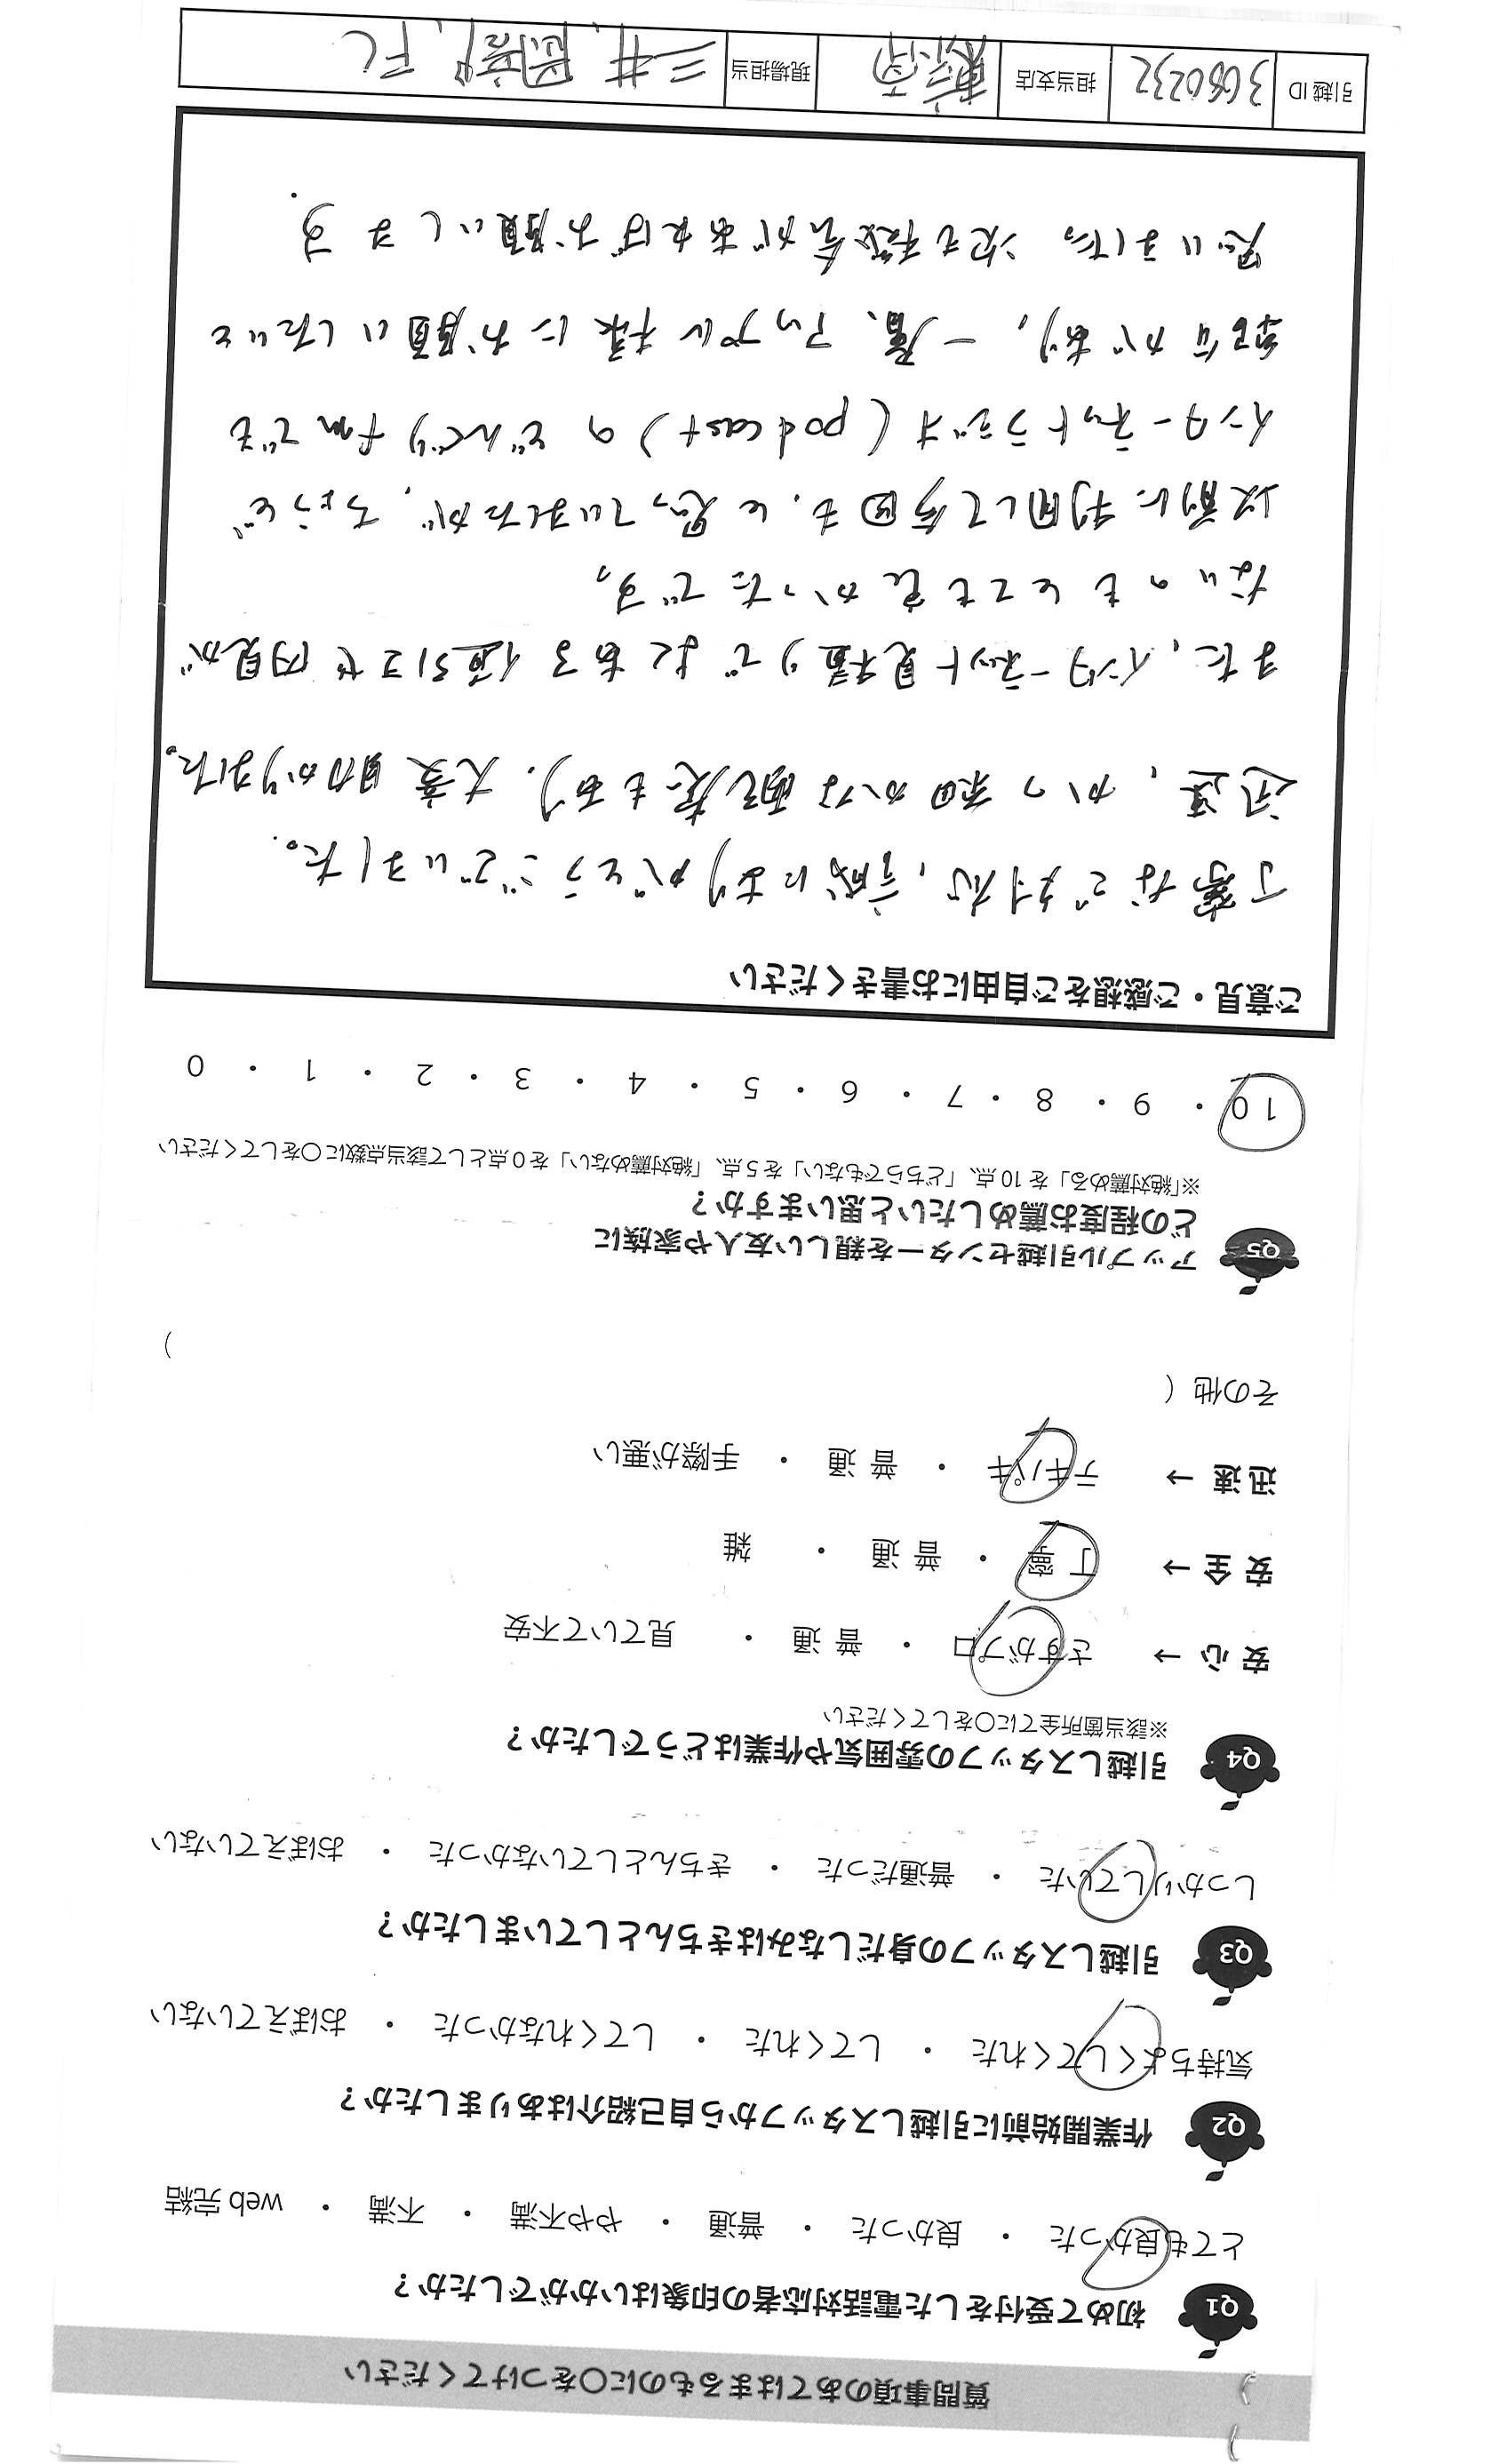 質問事項のあてはまるものに○をつけてください
Q1 初めて受付をした電話対応者の印象はいかがでしたか？
とても良かった ・ 良かった ・ 普通 ・ やや不満 ・ 不満 ・ web 完結
Q2 作業開始前に引越しスタッフから自己紹介はありましたか？
気持ちよくしてくれた ・ してくれた ・ してくれなかった ・ おぼえていない
Q3 引越しスタッフの身だしなみはきちんとしていましたか？
しっかりしていた ・ 普通だった ・ きちんとしていなかった ・ おぼえていない
Q4 引越しスタッフの雰囲気や作業はどうでしたか？
※該当箇所全てに○をしてください
安 心 → さすがプロ ・ 普 通 ・ 見ていて不安
安 全 → 丁 寧 ・ 普 通 ・ 雑
迅 速 → テキパキ ・ 普 通 ・ 手際が悪い
その他（ ）
Q5 アップル引越センターを親しい友人や家族に
どの程度お薦めしたいと思いますか？
※「絶対薦める」を 10 点、「どちらでもない」を 5 点、「絶対薦めない」を 0 点として該当点数に○をしてください
10 ・ 9 ・ 8 ・ 7 ・ 6 ・ 5 ・ 4 ・ 3 ・ 2 ・ 1 ・ 0
ご意見・ご感想をご自由にお書きください
丁寧なご対応、誠にありがとうございました。
迅速、かつ細かな配慮もあり、大変助かりました。
また、インターネット見積りでよくある値引コセ内見が
ないのもとても良かったです。
以前に利用して今回も、と思っていましたが、ちょうど
インターネットラジオ(podcast)のどんぐりfmでも
紹介があり、一層、アップル様にお願いしたいと
思いました。次も機会があればお願いします.
引越 ID 3080232 担当支店 東京南 現場担当 三井、尾嵜、FC